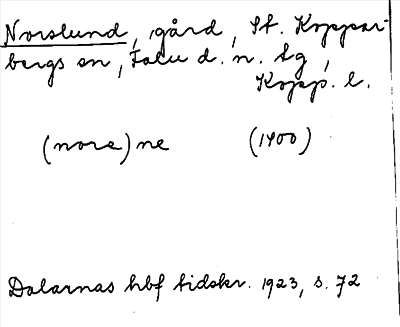 Norslund, gård, St. Koppar-
bergs sn, Falu d. n. tg,
Kopp. l.
(nore)ne (1400)
Dalarnas hbf tidskr. 1923, s. 72